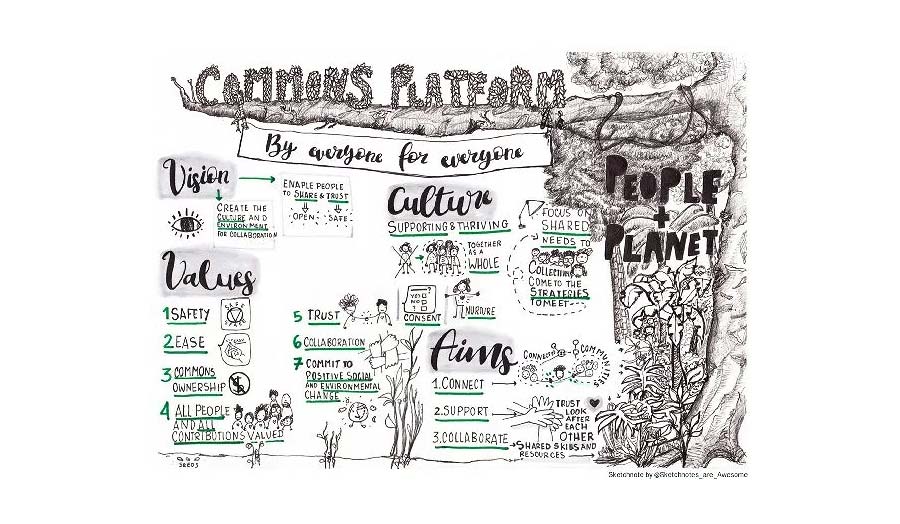 COMMONS PLATFORM
By everyone for everyone
PEOPLE
+
PLANET
Vision
CREATE THE
CULTURE AND
ENVIRONMENT
FOR COLLABORATION
ENABLE PEOPLE
TO SHARE & TRUST
OPEN SAFE
Culture
SUPPORTING & THRIVING
TOGETHER
AS A
WHOLE
YES
NO
CONSENT
NURTURE
FOCUS ON
SHARED
NEEDS TO
COME TO THE
STRATEGIES
TO MEET
Values
1 SAFETY
2 EASE
3 COMMONS
OWNERSHIP
4 ALL PEOPLE
AND ALL
CONTRIBUTIONS VALUED
5 TRUST
6 COLLABORATION
7 COMMIT TO
POSITIVE SOCIAL
AND ENVIRONMENTAL
CHANGE
Aims
1. CONNECT
CONNECTING
COMMUNITIES
2. SUPPORT
TRUST
LOOK
AFTER
EACH
OTHER
3. COLLABORATE
SHARED SKILLS AND
RESOURCES
SEEDS
Sketchnote by @Sketchnotes_are_Awesome